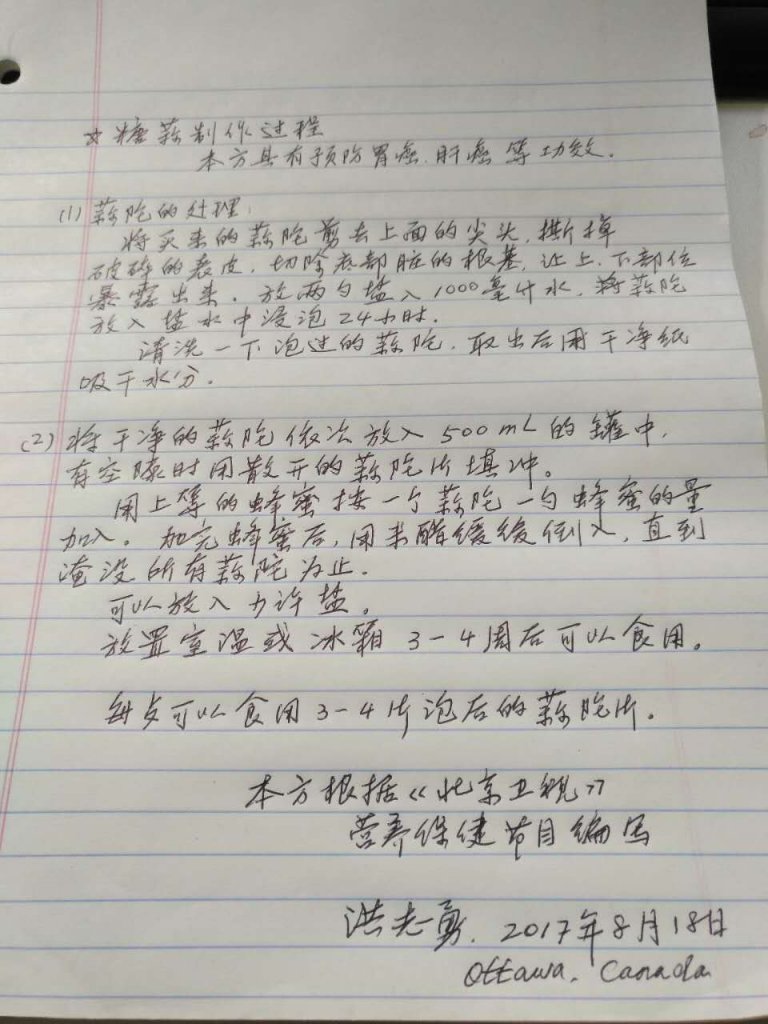 ☆ 糖蒜制作过程
本方具有预防胃癌.肝癌等功效.
(1) 蒜陀的处理:
将买来的蒜陀剪去上面的尖头,撕掉
破碎的表皮,切除底部脏的根基,让上.下部位
暴露出来.放两勺盐入1000毫升水,将蒜陀
放入盐水中浸泡24小时.
清洗一下泡过的蒜陀.取出后用干净纸
吸干水分.
(2) 将干净的蒜陀依次放入500mL的罐中,
有空隙时用散开的蒜陀片填冲。
用上等的蜂蜜按一个蒜陀一勺蜂蜜的量
加入。加完蜂蜜后,用米醋缓缓倒入,直到
淹没所有蒜陀为止.
可以放入少许盐。
放置室温或冰箱3-4周后可以食用。
每点可以食用3-4片泡后的蒜陀片。
本方根据《北京卫视》
营养保健节目编写
洪志勇. 2017年8月18日
Ottawa, Canada